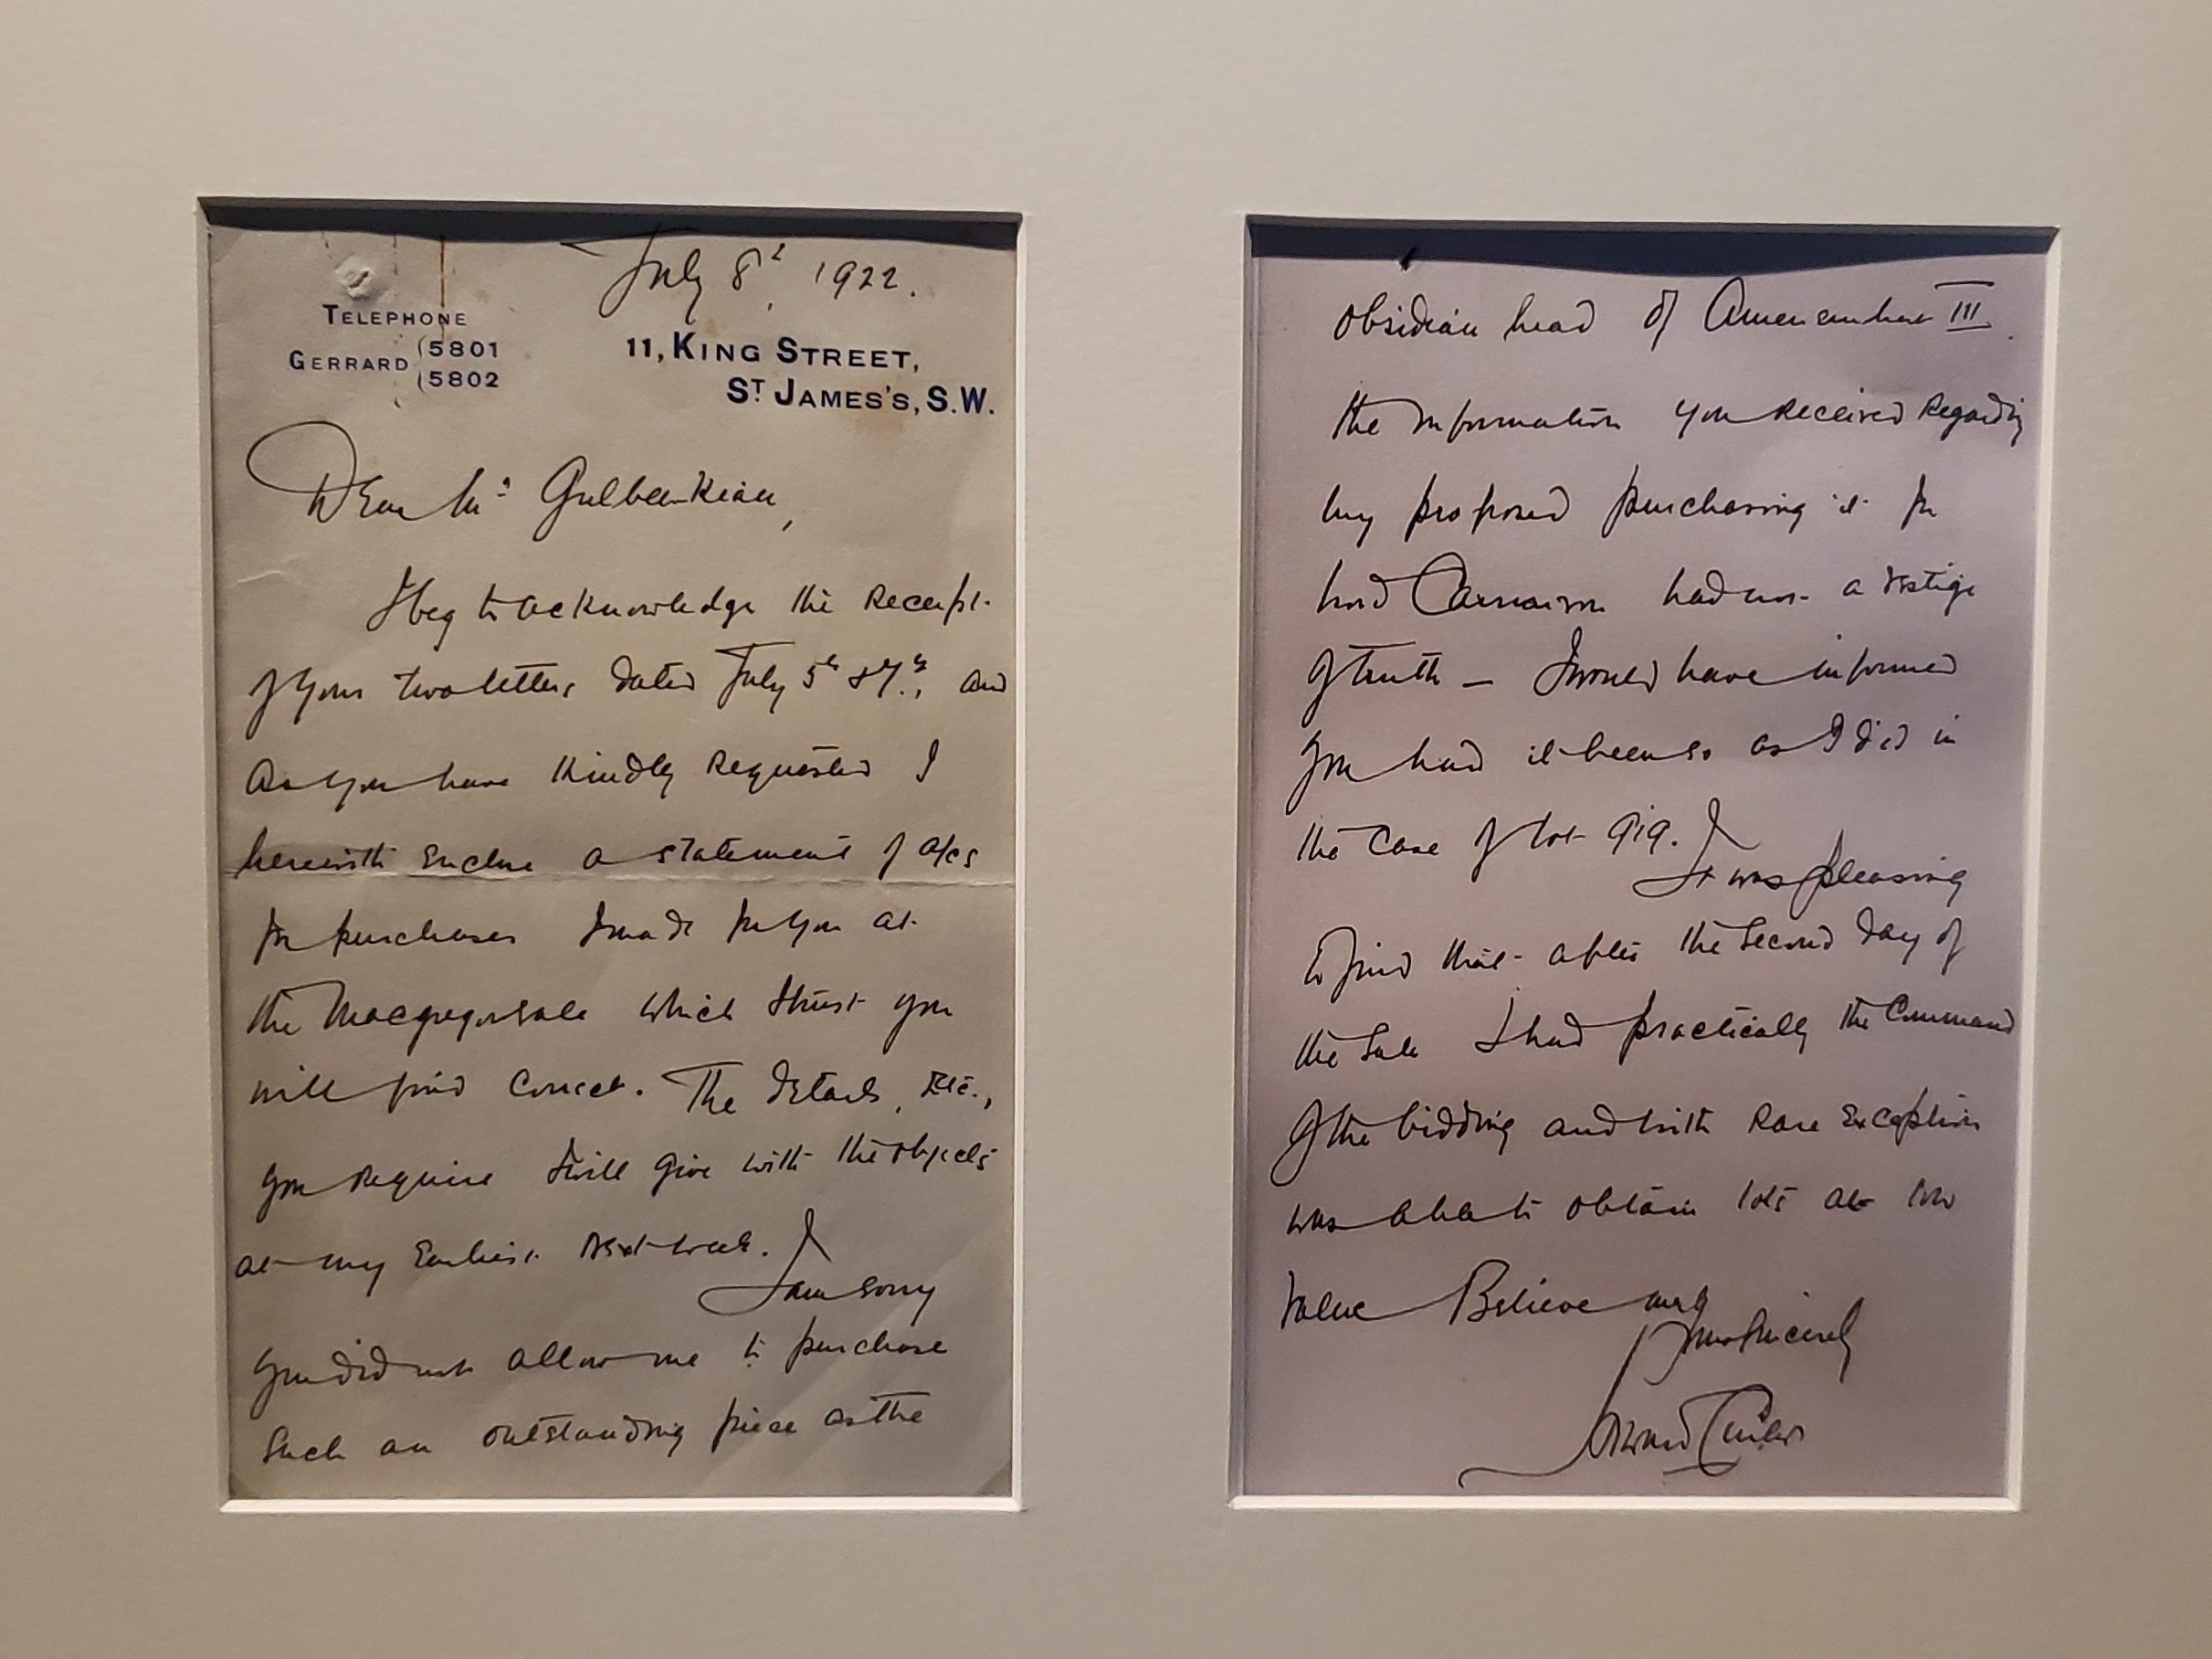 July 8th, 1922.
TELEPHONE
GERRARD (5801
(5802
11, KING STREET,
ST JAMES'S, S.W.
Dear Mr Gulbenkian,
I beg to acknowledge the receipt
of your two letters dated July 5th & 7th, and
as you have kindly requested I
herewith enclose a statement of a/cs
for purchases I made for you at
the Macgregor sale which I trust you
will find correct. The details, etc.,
you require I will give with the objects
at my earliest next week.
I am sorry
you did not allow me to purchase
such an outstanding piece as the
obsidian head of Amenemhat III.
the information you received regarding
my proposed purchasing it for
Lord Carnarvon had not a vestige
of truth — I would have informed
you had it been so as I did in
the case of lot 919.
It was pleasing
to find that after the second day of
the sale I had practically the command
of the bidding and with rare exception
was able to obtain lots at low
value Believe me
Yours sincerely
Howard Carter